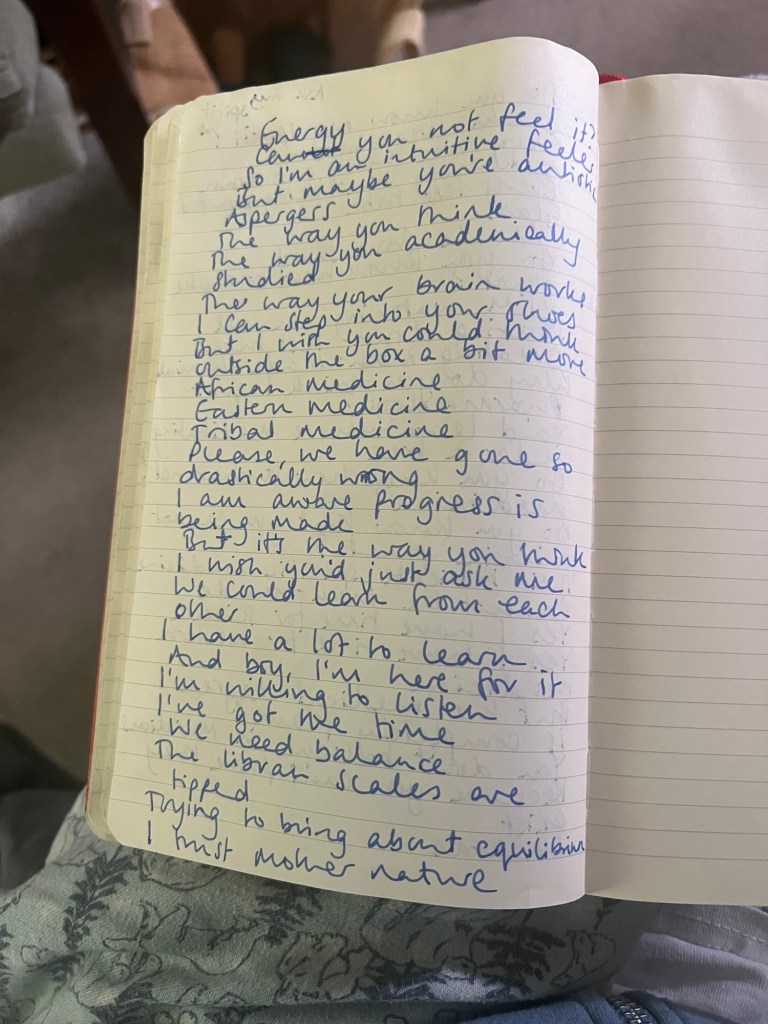 Energy
Can you not feel it?
So I'm an intuitive feeler
But maybe you're autistic
Aspergers
The way you think
The way you academically
studied
The way your brain works
I can step into your shoes
But I wish you could think
outside the box a bit more
African medicine
Eastern medicine
Tribal medicine
Please, we have gone so
drastically wrong
I am aware progress is
being made
But it's the way you think
I wish you'd just ask me
We could learn from each
other
I have a lot to learn
And boy, I'm here for it
I'm willing to listen
I've got the time
We need balance
The libran scales are
tipped
Trying to bring about equilibrium
I trust mother nature